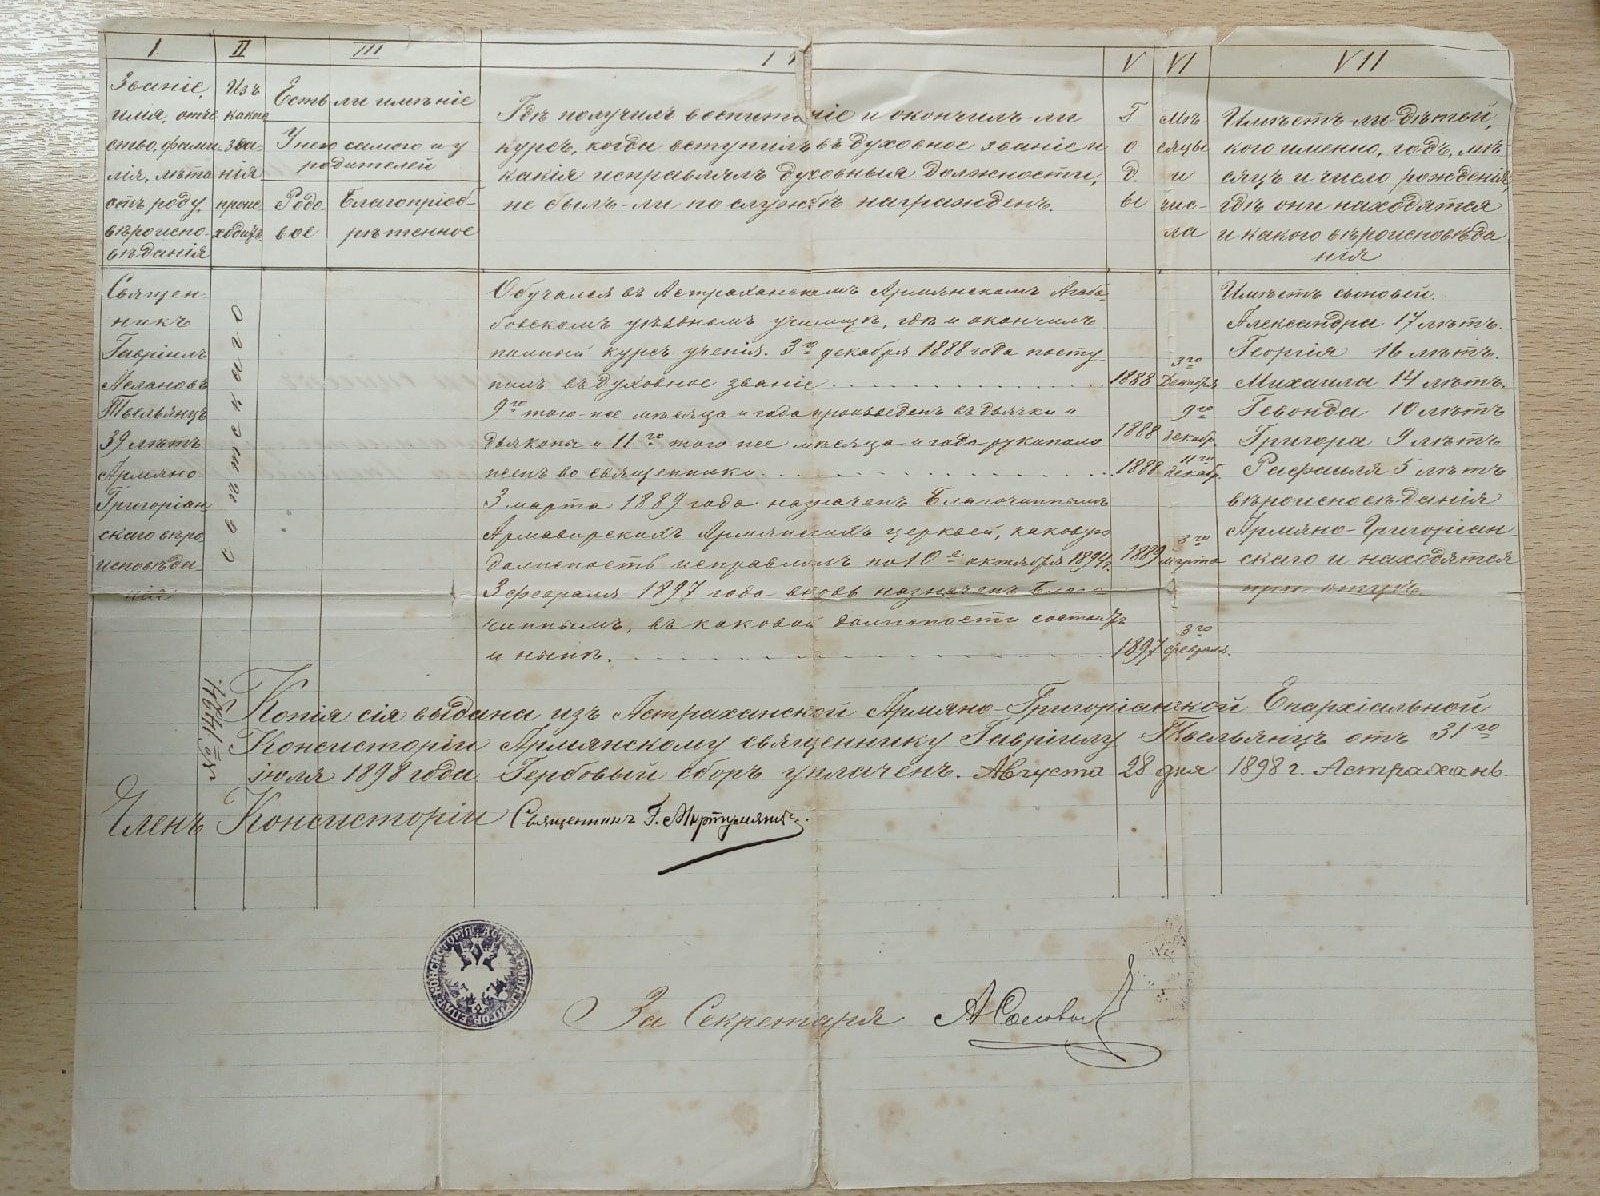 I
II
III
IV
V
VI
VII
Званіе,
имя, отче
ство, фами
лія, лѣта
отъ роду,
вѣроиспо-
вѣданія
Изъ
какого
зва
нія
проис
ходитъ
Есть ли имѣніе
У него самого и у
родителей
Родо
вое
Благопріоб-
рѣтенное
Гдѣ получилъ воспитаніе и окончилъ ли
курсъ, когда вступилъ въ духовное званіе и
какія исправлялъ духовныя должности,
не былъ-ли по службѣ награжденъ.
Г
о
д
ы
Мѣ
сяцы
и
чис-
ла
Имѣетъ ли дѣтей,
кого именно, годъ, мѣ-
сяцъ и число рожденія,
гдѣ они находятся
и какого вѣроисповѣда
нія
Священ-
никъ
Гавріилъ
Твельянцъ
39 лѣтъ
Армяно-
Григоріан
скаго вѣро
исповѣда
нія
свѣтскаго
Обучался въ Астраханскомъ Армянскомъ Агаба
бовскомъ уѣздномъ училищѣ, гдѣ и окончилъ
полный курсъ ученія. 3го декабря 1888 года посту
пилъ въ духовное званіе
9го того-же мѣсяца и года произведенъ въ дьячки и
дьяконы и 11го того же мѣсяца и года рукополо
женъ во священники.
3 марта 1889 года назначенъ Благочиннымъ
Армавирскихъ Армянскихъ церквей, каковую
должность исправлялъ по 10е октября 1894г.
3 февраля 1897 года вновь назначенъ Благо
чиннымъ, въ каковой должности состоитъ
и нынѣ.
1888
3го
декабря
1888
9го
декабр.
1888
11го
декабр.
1889
3го
марта
1897
3го
февраля.
Имѣетъ сыновей.
Александра 17 лѣтъ.
Георгія 16 лѣтъ.
Михаила 14 лѣтъ.
Гевонда 10 лѣтъ
Григора 9 лѣтъ
Рафаиля 5 лѣтъ
вѣроисповѣданія
Армяно-Григоріан-
скаго и находятся
при отцѣ.
Копія сія выдана изъ Астраханской Армяно-Григоріанской Епархіальной
Консисторіи Армянскому священнику Гавріилу Твельянцъ отъ 31го
іюля 1898 года Гербовый сборъ уплаченъ. Августа 28 дня 1898 г. Астрахань.
Членъ Консисторіи Священникъ Г. Мкртумянцъ.
За Секретаря